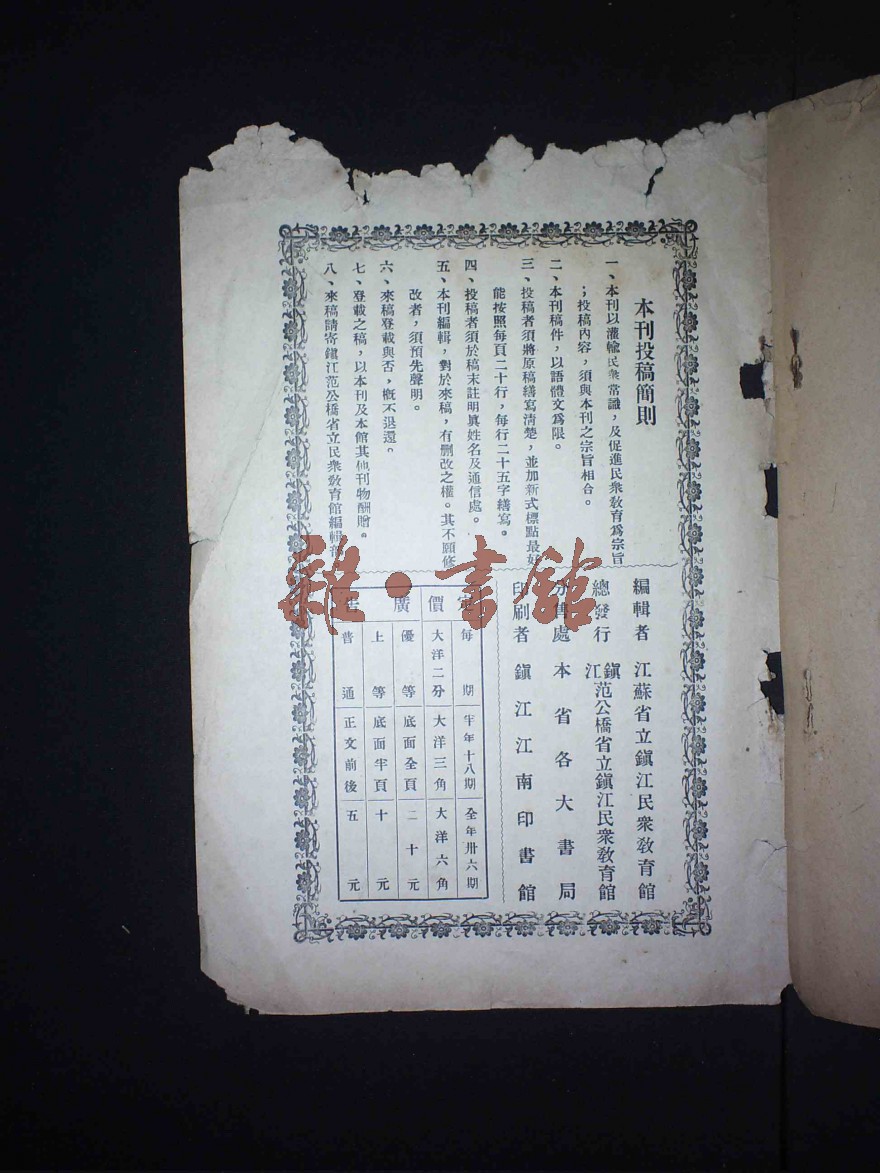 本刊投稿簡則
一、本刊以灌輸民衆常識，及促進民衆敎育爲宗旨
；投稿內容，須與本刊之宗旨相合。
二、本刊稿件，以語體文爲限。
三、投稿者須將原稿繕寫淸楚，並加新式標點最好
能按照每頁二十行，每行二十五字繕寫。
四、投稿者須於稿末註明眞姓名及通信處。
五、本刊編輯，對於來稿，有删改之權。其不願修
改者，須預先聲明。
六、來稿登載與否，槪不退還。
七、登載之稿，以本刊及本館其他刊物酬贈。
八、來稿請寄鎭江范公橋省立民衆敎育館編輯部
編輯者 江蘇省立鎭江民衆敎育館
總發行 鎭江范公橋省立鎭江民衆敎育館
分售處 本省各大書局
印刷者 鎭江江南印書館
定價
每期 半年十八期 全年卅六期
大洋二分 大洋三角 大洋六角
廣告
優等 底面全頁 二十元
上等 底面半頁 十元
普通 正文前後 五元
雜·書館